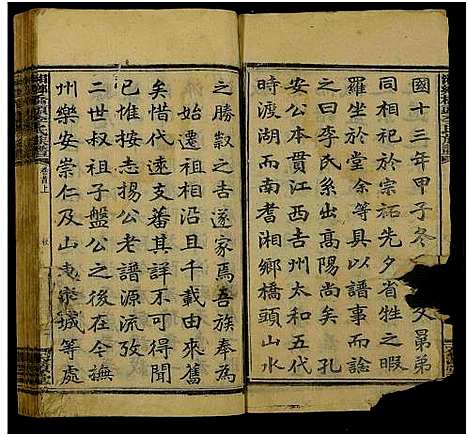 國十三年甲子冬
父勗弟
同相祀於宗祏先夕省牲之暇
羅坐於堂余等具以譜事而諗
之曰於李氏系出高陽尚矣孔
安公本貫江西吉州太和五代
時渡湖而南耆湘鄉橋頭山水
之勝糓之吉遂家焉吾族奉為
始遷祖相沿且千載由來舊
矣惜代遠支蕃其詳不可得聞
已惟按志揚公老譜源流攷
二世叔祖子盤公之後在今撫
州樂安崇仁及山
城等處
卷首上